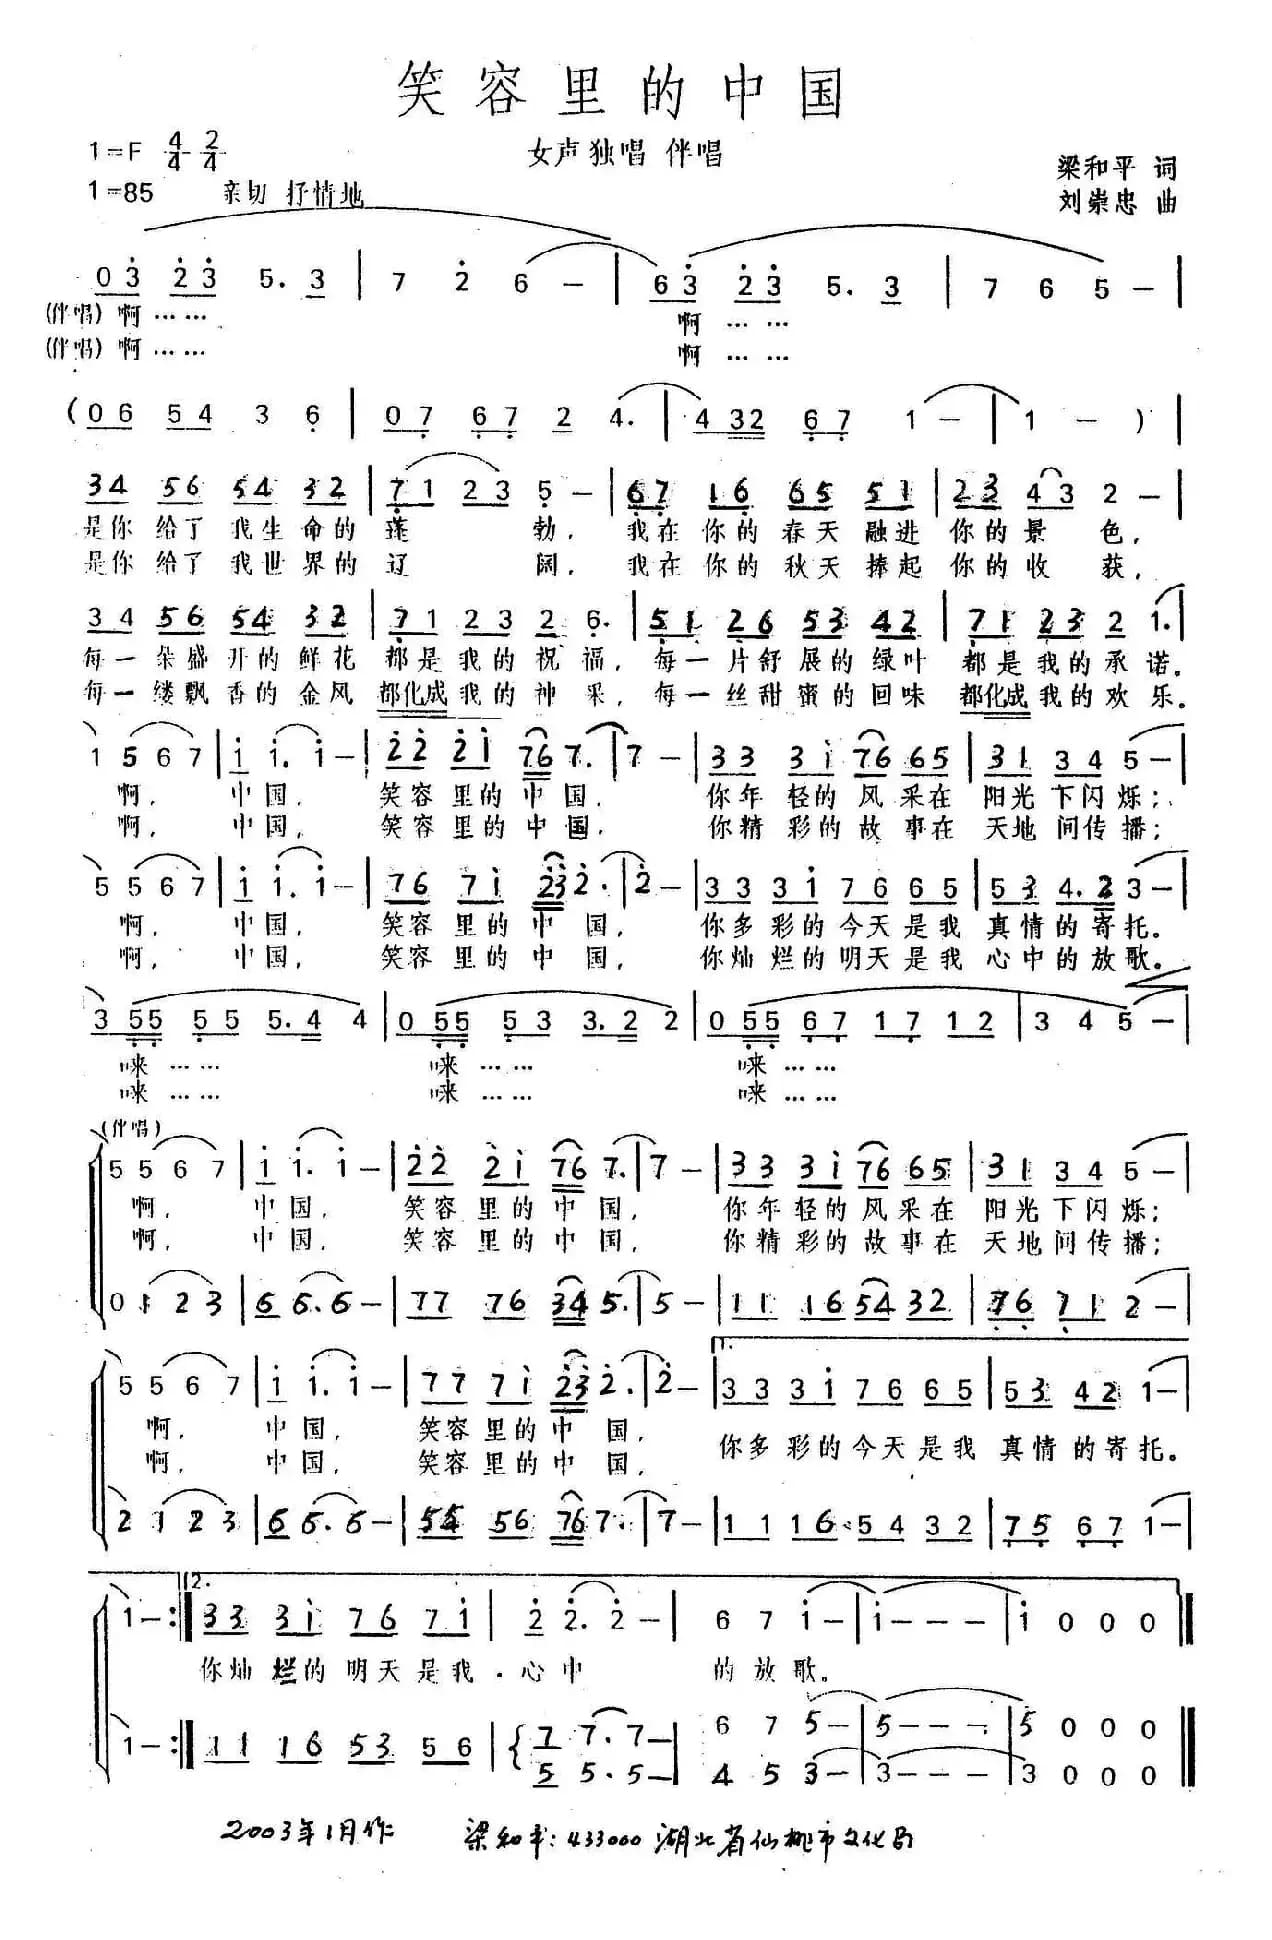 笑容里的中国
1=F 4/4 2/4
女声独唱 伴唱
梁和平 词
1=85 亲切 抒情地
刘崇忠 曲
03 23 5. 3 | 7 2 6 - | 63 23 5. 3 | 7 6 5 - |
(伴唱) 啊…… 啊……
(伴唱) 啊…… 啊……
(06 54 3 6 | 07 67 2 4. | 432 67 1 - | 1 - ) |
34 56 54 32 | 71 23 5 - | 67 16 65 51 | 23 43 2 - |
是你 给了 我生 命的 蓬 勃, 我在 你的 春天 融进 你的 景 色,
是你 给了 我世 界的 辽 阔, 我在 你的 秋天 捧起 你的 收 获,
34 56 54 32 | 71 23 2 6. | 51 26 53 42 | 71 23 2 1. |
每一 朵盛 开的 鲜花 都是 我的 祝 福, 每一 片舒 展的 绿叶 都是 我的 承 诺。
每一 缕飘 香的 金风 都化成 我的 神 采, 每一 丝甜 蜜的 回味 都化成 我的 欢 乐。
1 5 6 7 | 1 1. 1 - | 22 21 76 7. | 7 - | 33 31 76 65 | 31 34 5 - |
啊, 中 国, 笑容 里的 中 国, 你年 轻的 风 采在 阳光 下闪 烁;
啊, 中 国, 笑容 里的 中 国, 你精 彩的 故 事在 天地 间传 播;
5 5 6 7 | 1 1. 1 - | 76 71 23 2. | 2 - | 33 31 76 65 | 53 4. 2 3 - |
啊, 中 国, 笑容 里的 中 国, 你多 彩的 今天 是我 真情 的寄 托。
啊, 中 国, 笑容 里的 中 国, 你灿 烂的 明天 是我 心中 的放 歌。
3 55 55 5. 4 4 | 0 55 53 3. 2 2 | 0 55 67 17 12 | 3 4 5 - |
唻…… 唻…… 唻……
唻…… 唻…… 唻……
(伴唱)
5 5 6 7 | 1 1. 1 - | 22 21 76 7. | 7 - | 33 31 76 65 | 31 34 5 - |
啊, 中 国, 笑容 里的 中 国, 你年 轻的 风 采在 阳光 下闪 烁;
啊, 中 国, 笑容 里的 中 国, 你精 彩的 故 事在 天地 间传 播;
0 1 2 3 | 6 6. 6 - | 77 76 34 5. | 5 - | 11 16 54 32 | 76 71 2 - |
1.
5 5 6 7 | 1 1. 1 - | 77 71 23 2. | 2 - | 33 31 76 65 | 53 42 1 - |
啊, 中 国, 笑容 里的 中 国, 你多 彩的 今天 是我 真情 的寄 托。
啊, 中 国, 笑容 里的 中 国,
2 1 2 3 | 6 6. 6 - | 55 56 76 7. | 7 - | 11 16 54 32 | 75 67 1 - |
2.
1 - :| 33 31 76 71 | 2 2. 2 - | 6 7 1 - | 1 - - - | 1 0 0 0 |
你灿 烂的 明天 是我 心中 的 放 歌。
1 - :| 11 16 53 56 | 7 7. 7 - | 6 7 5 - | 5 - - - | 5 0 0 0 |
5 5. 5 - | 4 5 3 - | 3 - - - | 3 0 0 0 |
2003年1月作 梁和平: 433000 湖北省仙桃市文化局